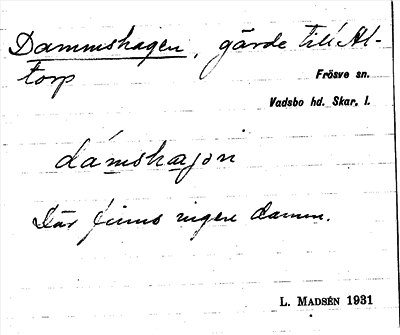 Dammshagen, gärde till Al-
torp
Frösve sn.
Vadsbo hd. Skar. l.
dámshagɔn
Där finns ingen damm.
L. MADSÉN 1931